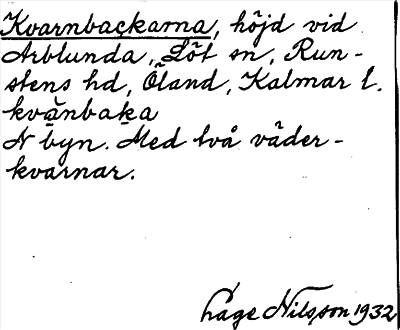 Kvarnbackarna, höjd vid
Arblunda, Löt sn, Run-
stens hd, Öland, Kalmar l.
kvànbaka
N byn. Med två väder-
kvarnar.
Åge Nilsson 1932